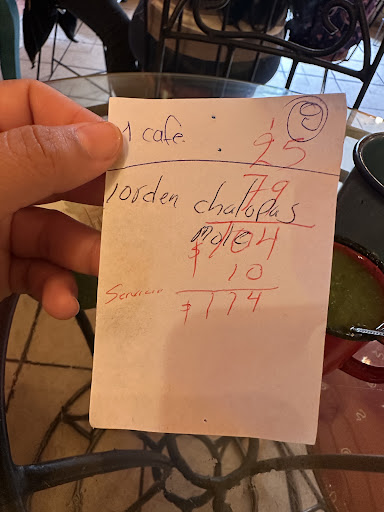 1 cafe.
1
25
1 orden chalupas
79
mole
$104
10
Servicio
$114